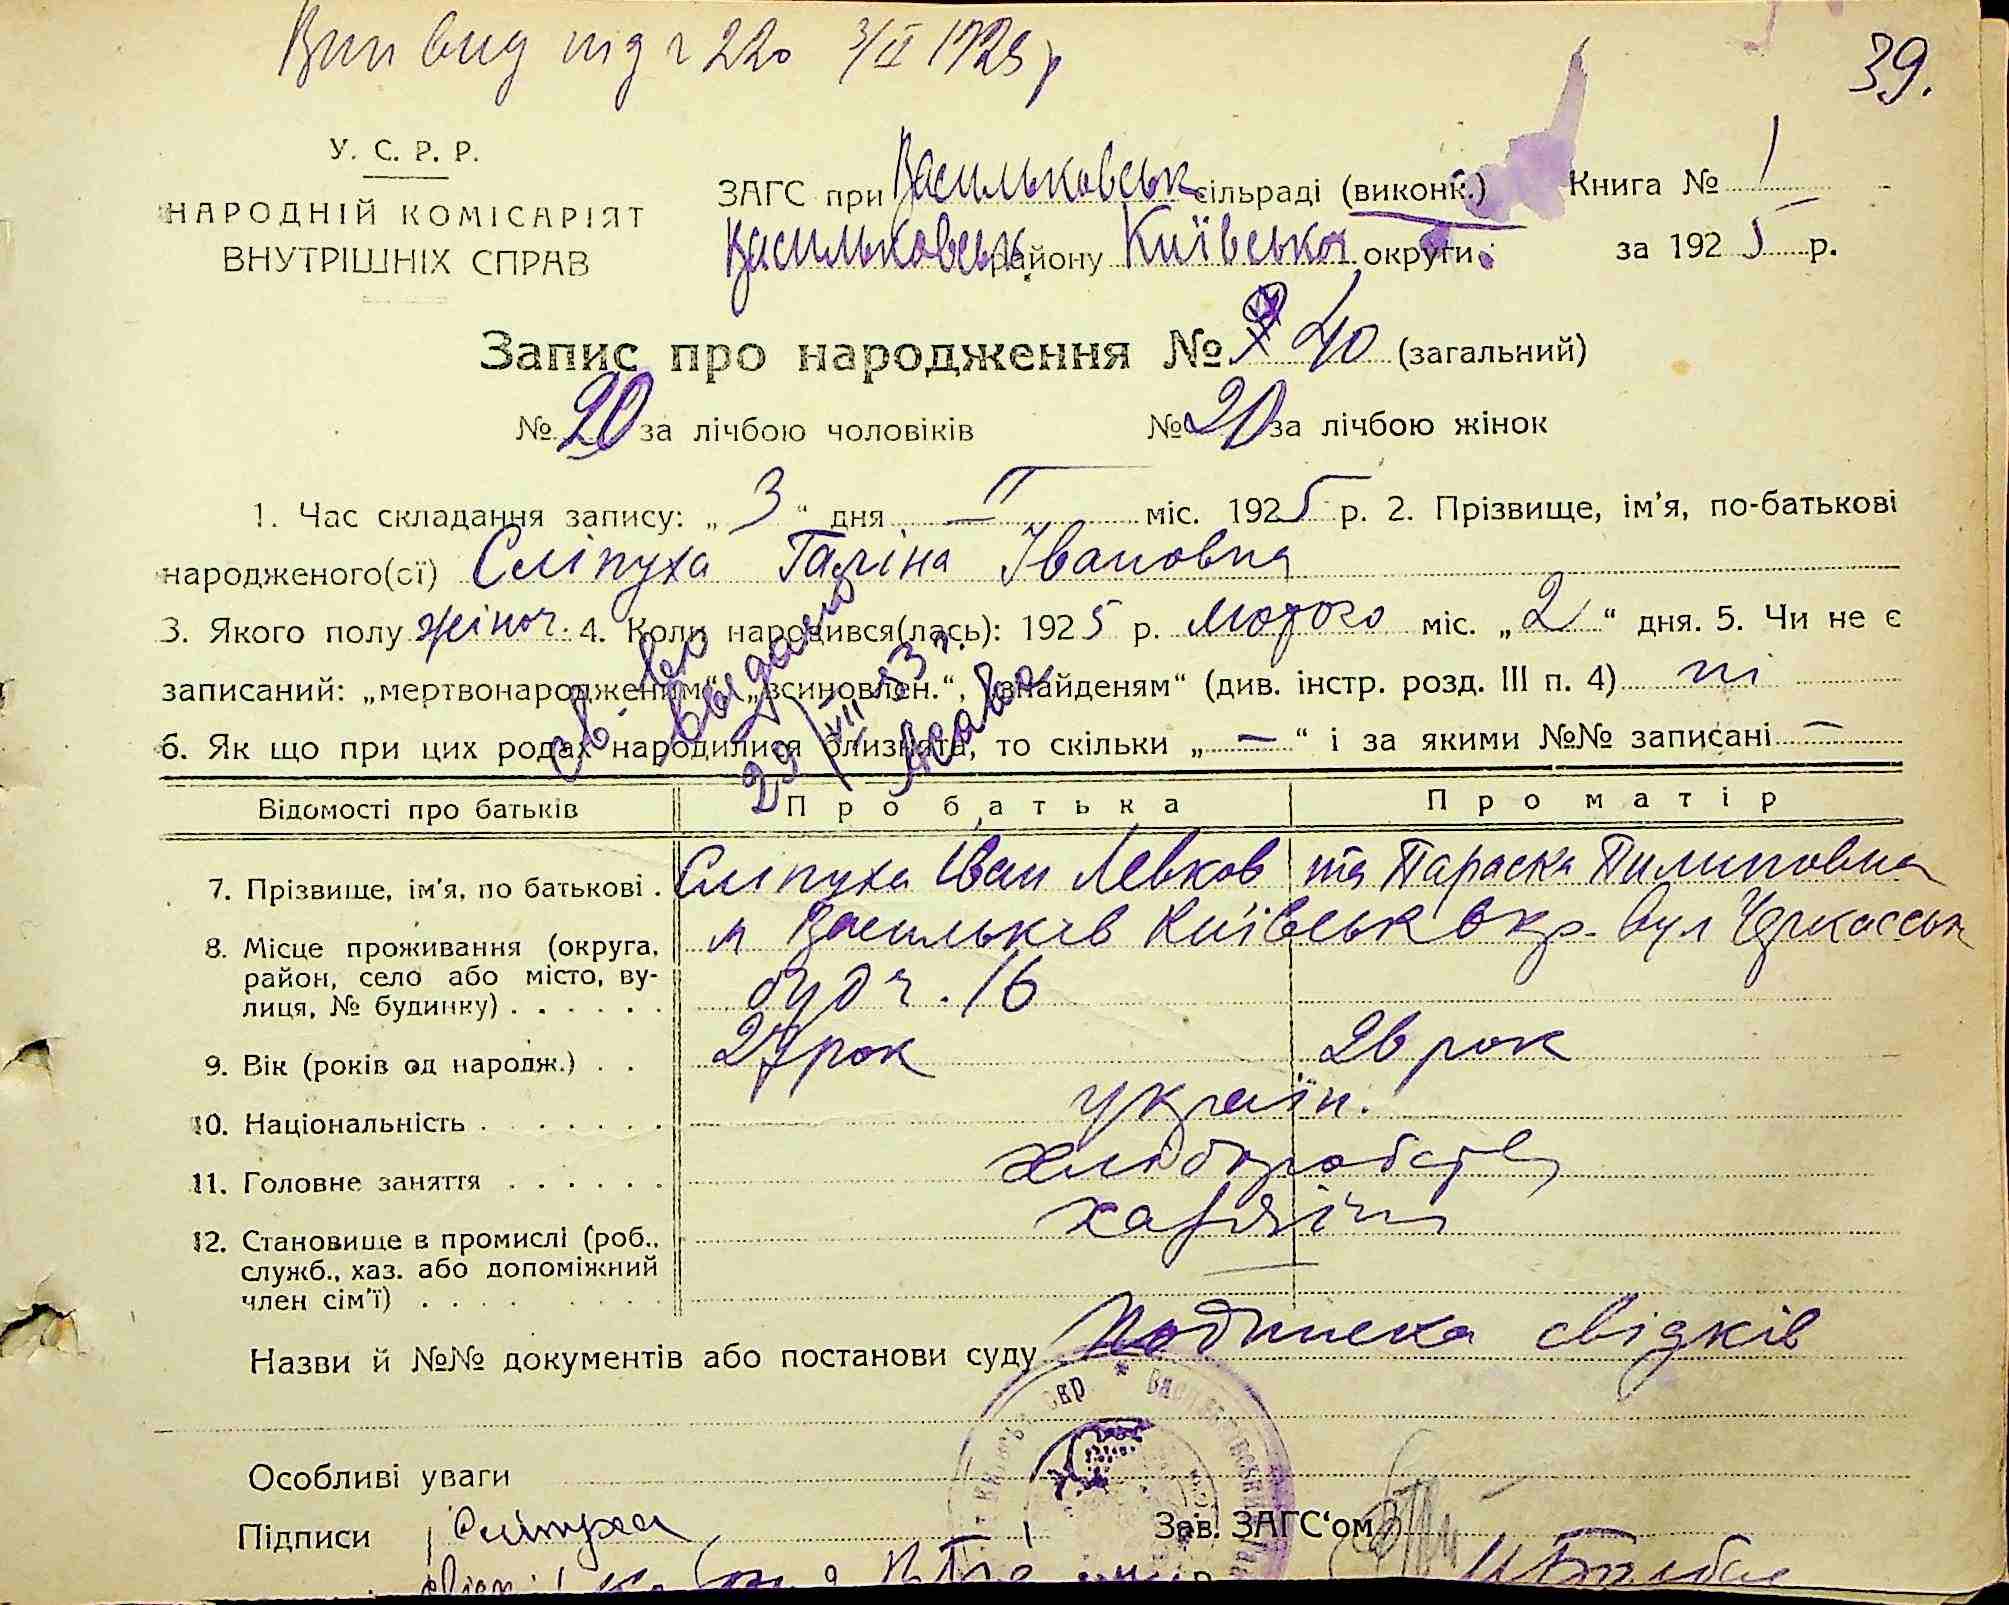 Вип вид під ч 220 3/II 1925 р
39.
У. С. Р. Р.
НАРОДНІЙ КОМІСАРІЯТ
ВНУТРІШНІХ СПРАВ
ЗАГС при Васильковськ сільраді (виконк.) Книга № 1
Васильковськ району Київської округи. за 1925 р.
Запис про народження № 40 (загальний)
№ 20 за лічбою чоловіків № 20 за лічбою жінок
1. Час складання запису: „ 3 “ дня II міс. 1925 р. 2. Прізвище, ім’я, по-батькові
народженого(сї) Сліпуха Галіна Івановна
3. Якого полу жіноч. 4. Коли народився(лась): 1925 р. Лютого міс. „ 2 “ дня. 5. Чи не є
записаний: „мертвонародженим“, „всиновлен.“, „знайденям“ (див. інстр. розд. III п. 4) ні
6. Як що при цих родах народилися близнята, то скільки „ — “ і за якими №№ записані —
св-во
выдано
29/VII 53 г.
Відомості про батьків Про батька Про матір
7. Прізвище, ім’я, по батькові . Сліпуха Іван Левков та Параска Пилиповна
8. Місце проживання (округа, район, село або місто, ву-лиця, № будинку) . . . . . . м Васильків Київськ Окр. вул Черкасськ
буд ч. 16
9. Вік (років од народж.) . . 27 рок 26 рок
10. Національність . . . . . . . україн.
11. Головне заняття . . . . . . хліборобство
12. Становище в промислі (роб., служб., хаз. або допоміжний член сім’ї) . . . . . . . . хазяїни
Назви й №№ документів або постанови суду Подписка свідків
Особливі уваги
Підписи Сліпуха Зав. ЗАГС‘ом